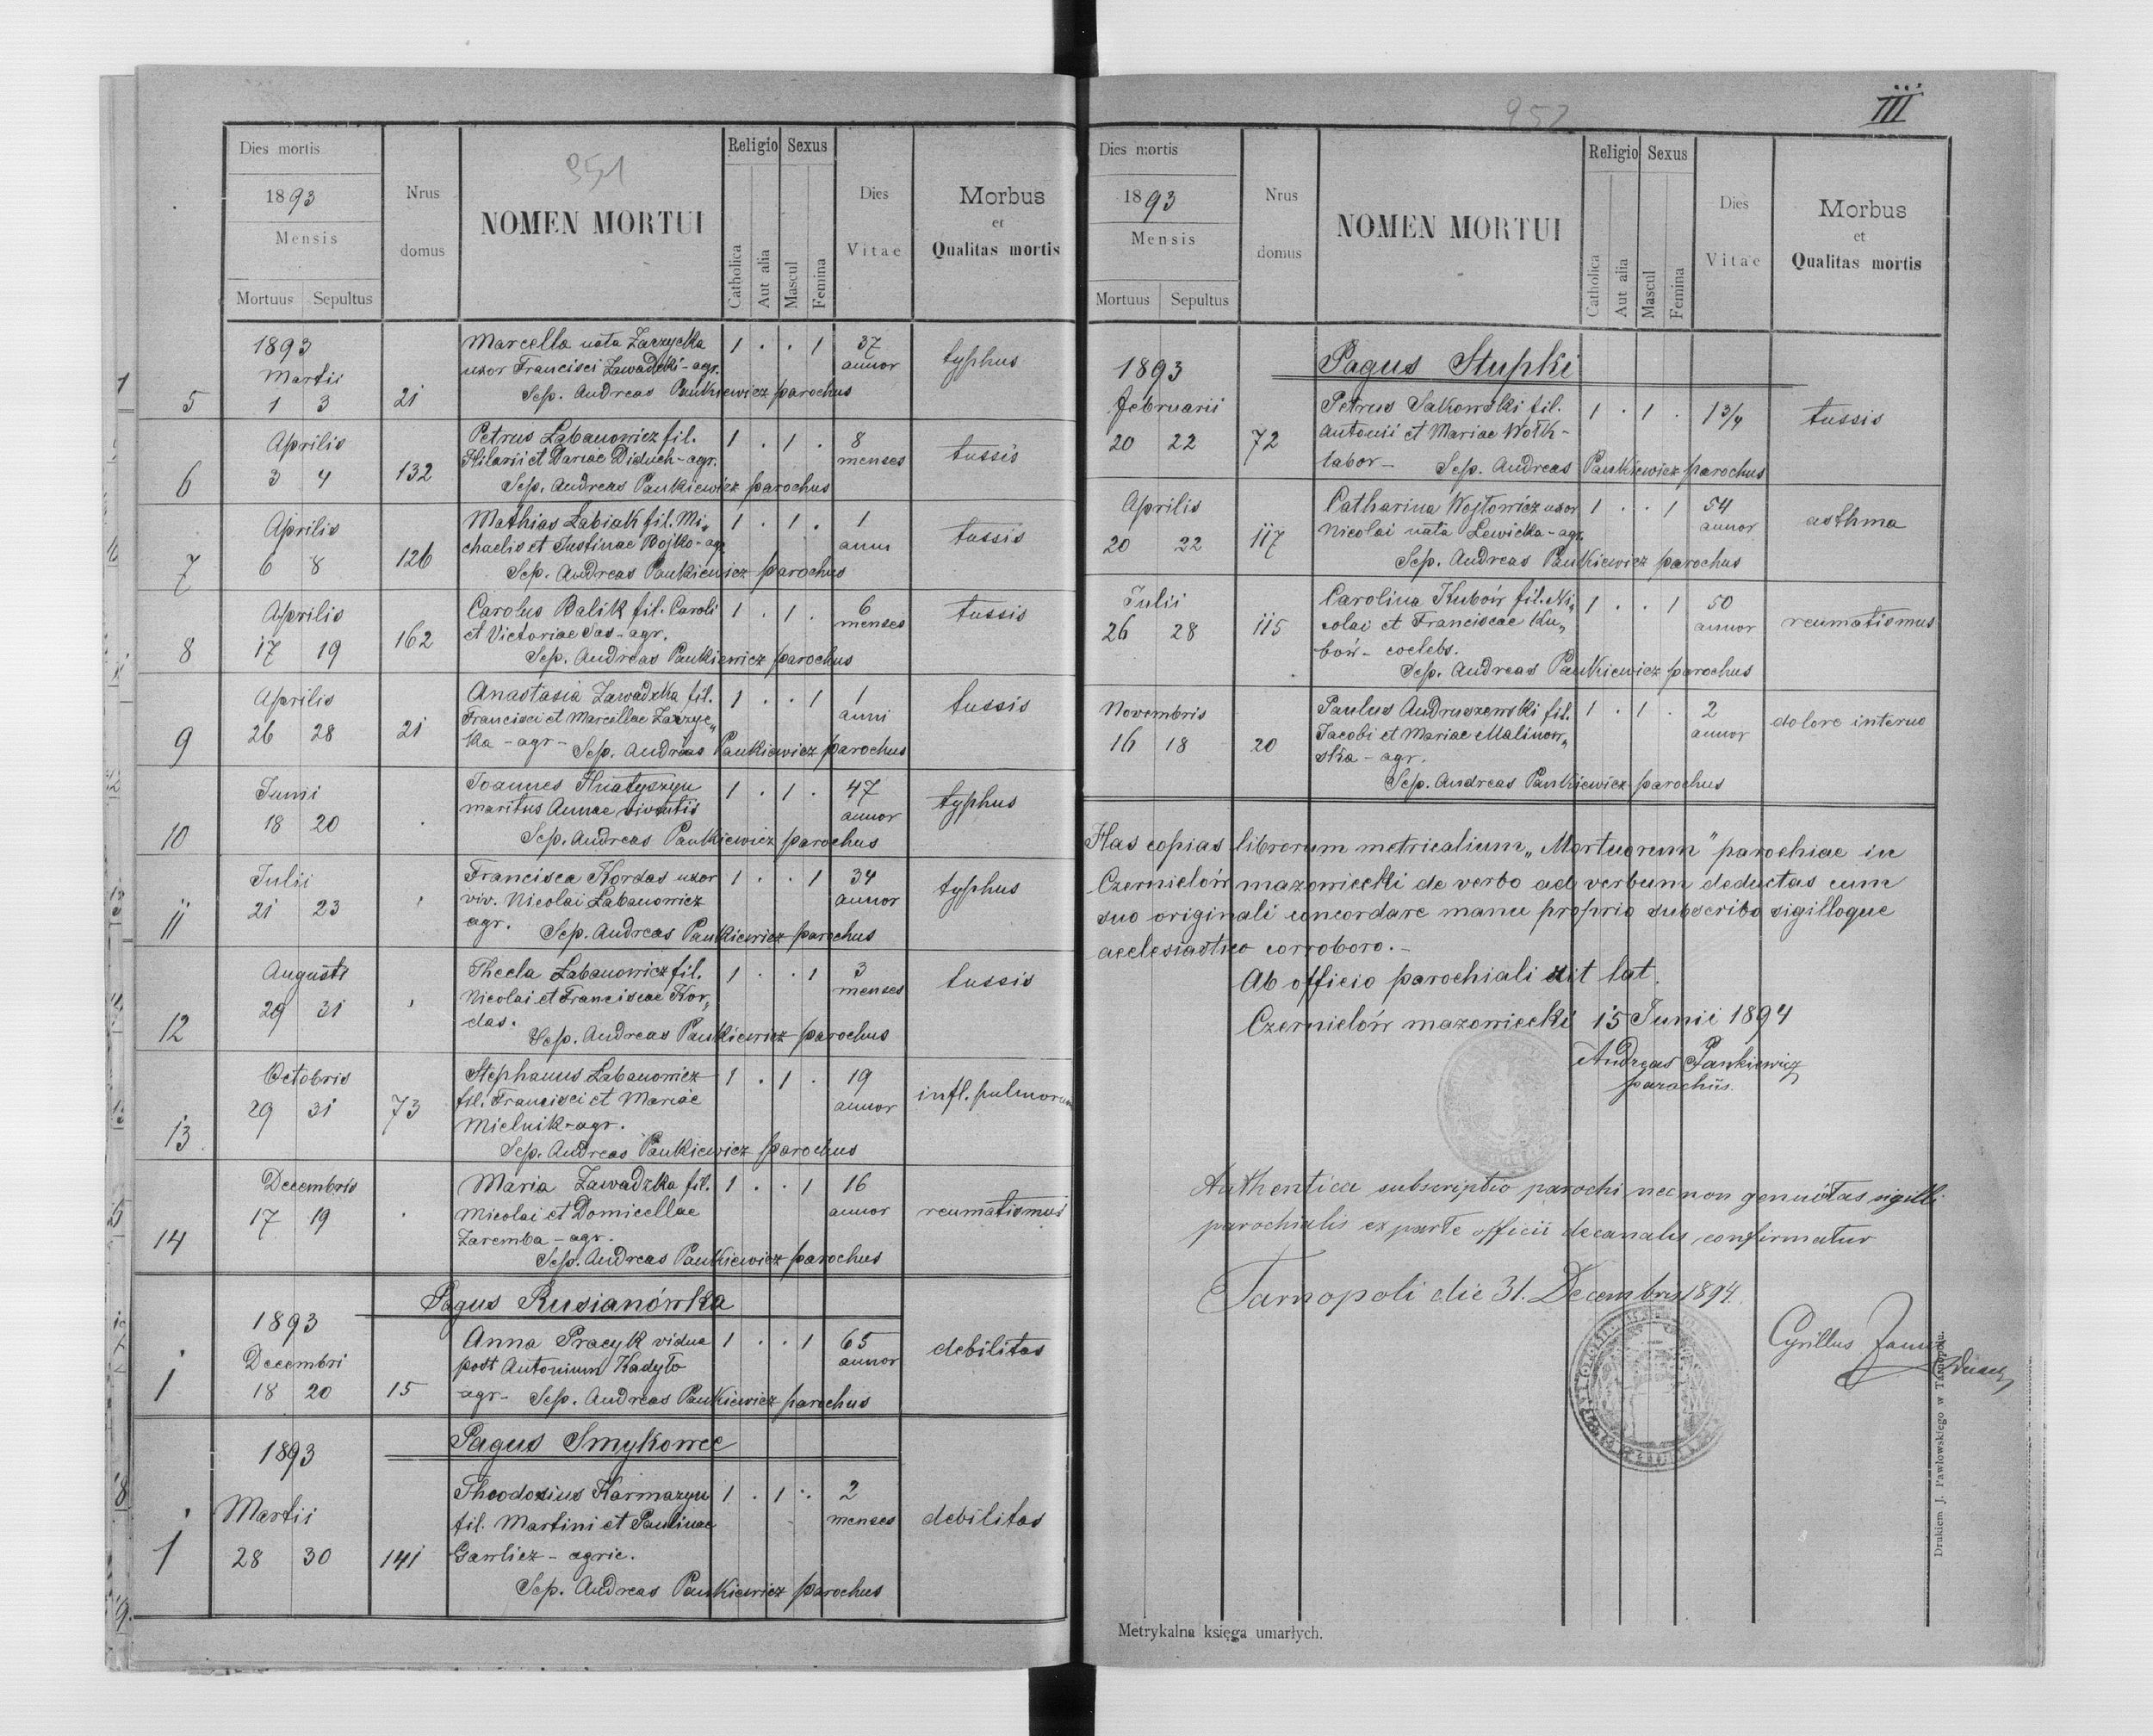 951
Dies mortis
1893
Mensis
Mortuus Sepultus
Nrus domus
NOMEN MORTUI
Religio Sexus
Catholica Aut alia Mascul Femina
Dies Vitae
Morbus
et
Qualitas mortis
1893 Marcella nata Zarzycka 1 . . 1 37 typhus
Martii uxor Francisci Zawadzki - agr. annor
5 1 3 21 Sep. Andreas Pankiewicz parochus
Aprilis Petrus Łabanowicz fil. 1 . 1 . 8 tussis
6 3 4 132 Hilarii et Dariae Diduch - agr. menses
Sep. Andreas Pankiewicz parochus
Aprilis Mathias Łabiak fil. Mi„ 1 . 1 . 1 tussis
7 6 8 126 chaelis et Justinae Bojko - agr. anni
Sep. Andreas Pankiewicz parochus
Aprilis Carolus Balik fil. Caroli 1 . 1 . 6 tussis
8 17 19 162 et Victoriae Sas - agr. menses
Sep. Andreas Pankiewicz parochus
Aprilis Anastasia Zawadzka fil. 1 . . 1 1 tussis
9 26 28 21 Francisci et Marcellae Zarzyc„ anni
ka - agr - Sep. Andreas Pankiewicz parochus
Junii Joannes Hnatyszyn 1 . 1 . 47 typhus
10 18 20 . maritus Annae viventis annor
Sep. Andreas Pankiewicz parochus
Julii Francisca Kordas uxor 1 . . 1 34 typhus
11 21 23 viv. Nicolai Łabanowicz annor
agr. Sep. Andreas Pankiewicz parochus
Augusti Thecla Łabanowicz fil. 1 . . 1 3 tussis
12 29 31 Nicolai et Franciscae Kor„ menses
das. Sep. Andreas Pankiewicz parochus
Octobris Stephanus Łabanowicz 1 . 1 . 19 infl. pulmorum
13 29 31 73 fil. Francisci et Mariae annor
Mielnik - agr.
Sep. Andreas Pankiewicz parochus
Decembris Maria Zawadzka fil. 1 . . 1 16 reumatismus
14 17 19 . Nicolai et Domicellae annor
Zaremba - agr.
Sep. Andreas Pankiewicz parochus
Pagus Rusianówka
1893 Anna Pracyk vidua 1 . . 1 65 debilitas
Decembri post Antonium Kadyło annor
1 18 20 15 agr - Sep. Andreas Pankiewicz parochus
Pagus Smykowce
1893
Martii Theodosius Karmazyn 1 . 1 . 2 debilitas
fil. Martini et Paulinae menses
1 28 30 141 Gawlicz - agric.
Sep. Andreas Pankiewicz parochus
952
III
Dies mortis
1893
Mensis
Mortuus Sepultus
Nrus domus
NOMEN MORTUI
Religio Sexus
Catholica Aut alia Mascul Femina
Dies Vitae
Morbus
et
Qualitas mortis
1893 Pagus Stupki
Februarii Petrus Sakowski fil. 1 . 1 . 1 3/4 tussis
20 22 72 Antonii et Mariae Wołk -
labor - Sep. Andreas Pankiewicz parochus
Aprilis Catharina Wojtowicz uxor 1 . . 1 54 asthma
20 22 117 Nicolai nata Lewicka - agr. annor
Sep. Andreas Pankiewicz parochus
Julii Carolina Kubów fil. Ni„ 1 . . 1 50 reumatismus
26 28 115 colai et Franciscae Ku„ annor
bów - coelebs.
Sep. Andreas Pankiewicz parochus
Novembris Paulus Andruszewski fil. 1 . 1 . 2 dolore interno
16 18 20 Jacobi et Mariae Malinow„ annor
ska - agr.
Sep. Andreas Pankiewicz parochus
Has copias librorum metricalium „Mortuorum" parochiae in
Czernielów mazowiecki de verbo ad verbum deductas cum
suo originali concordare manu propria subscribo sigilloque
aeclesiastico corroboro. -
Ab officio parochiali rit lat.
Czernielów mazowiecki 15 Junii 1894
Andreas Pankiewicz
parochus.
Authentica subscriptio parochi nec non genuitas sigilli
parochialis ex parte officii decanalis confirmatur
Tarnopoli die 31. Decembris 1894.
Cyrillus
Metrykalna księga umarłych.
Drukiem J. Pawłowskiego w Tarnopolu.